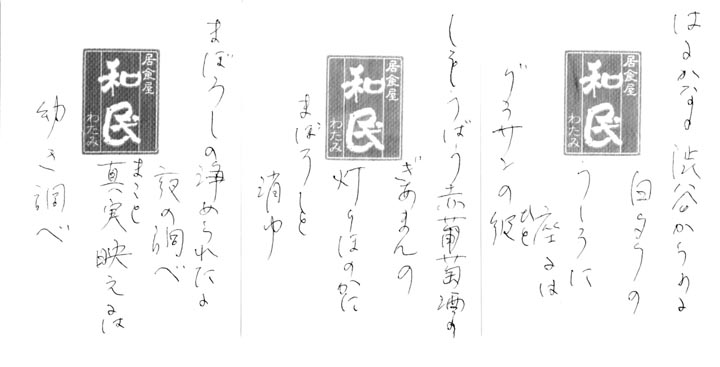 はるかなる渋谷から
うしろに
座るは
グラサンの
居食屋
和民
わたみ
赤葡萄酒の
ぎあまんの
灯りほのかに
まぼろしと
消ゆ
居食屋
和民
わたみ
まぼろしの浄められたる
夜の調べ
まこと
真実映えるは
幼き調べ
居食屋
和民
わたみ